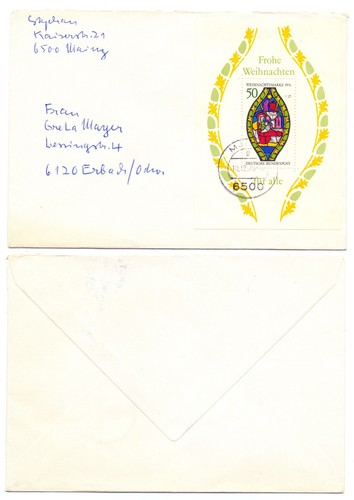 Stephan
Kaiserstr. 21
6500 Mainz
Frau
Greta Mayer
Lessingstr. 4
6120 Erbach/Odw.
Frohe
Weihnachten
WEIHNACHTSMARKE 1976
50
+25
DEUTSCHE BUNDESPOST
für alle
6500